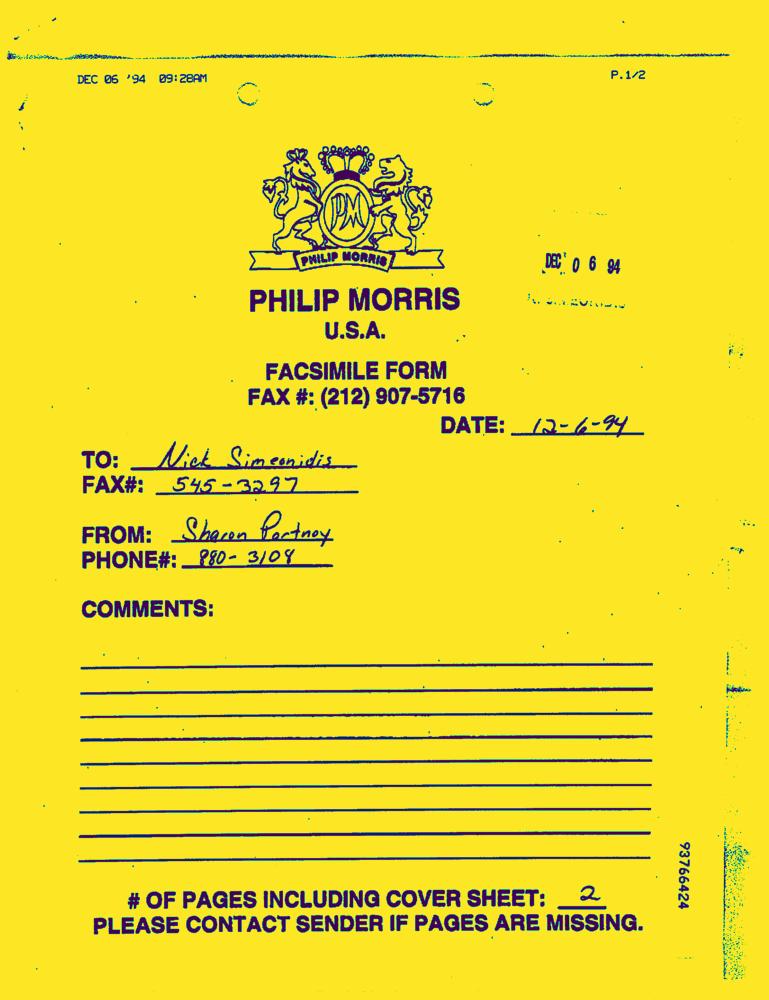 DEC 06 '94 09:28AM P.1/2
PM
PHILIP MORRIS
DEC 0 6 94
PHILIP MORRIS
U.S.A.
FACSIMILE FORM
FAX #: (212) 907-5716
DATE: 12-6-94
TO: Nick Simeonidis
FAX#: 545-3297
FROM: Sharon Portnoy
PHONE#: 880-3109
COMMENTS:
# OF PAGES INCLUDING COVER SHEET: 2
PLEASE CONTACT SENDER IF PAGES ARE MISSING.
93766424